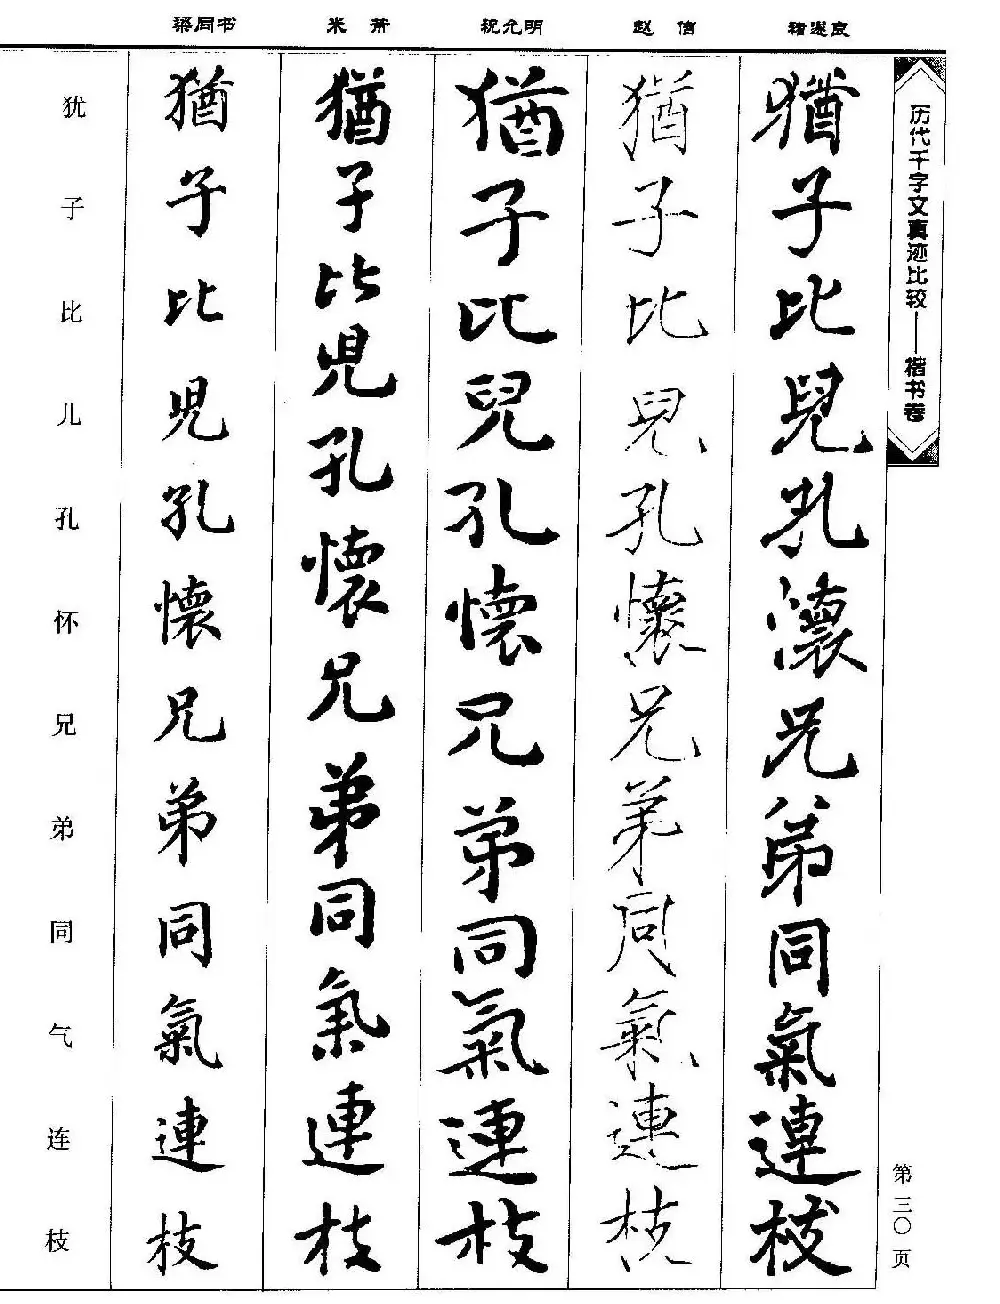 历代千字文真迹比较——楷书卷
第三〇页
褚遂良
猶子比兒孔懷兄弟同氣連枝
赵佶
猶子比兒孔懷兄弟同氣連枝
祝允明
猶子比兒孔懷兄弟同氣連枝
米芾
猶子比兒孔懷兄弟同氣連枝
梁同书
猶子比兒孔懷兄弟同氣連枝
犹子比儿孔怀兄弟同气连枝